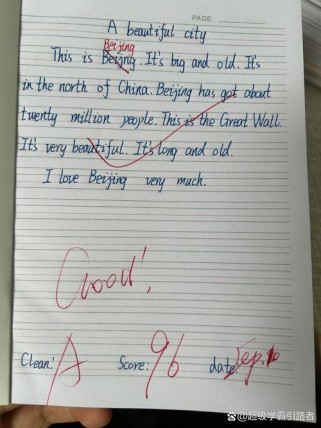 PAGE:
A beautiful city
Beijing
This is Beijing. It's big and old. It's
in the north of China. Beijing has got about
twenty million people. This is the Great Wall.
It's very beautiful. It's long and old.
I love Beijing very much.
Good!
Clean: A Score: 96 date Sep.
@超级学霸引路者